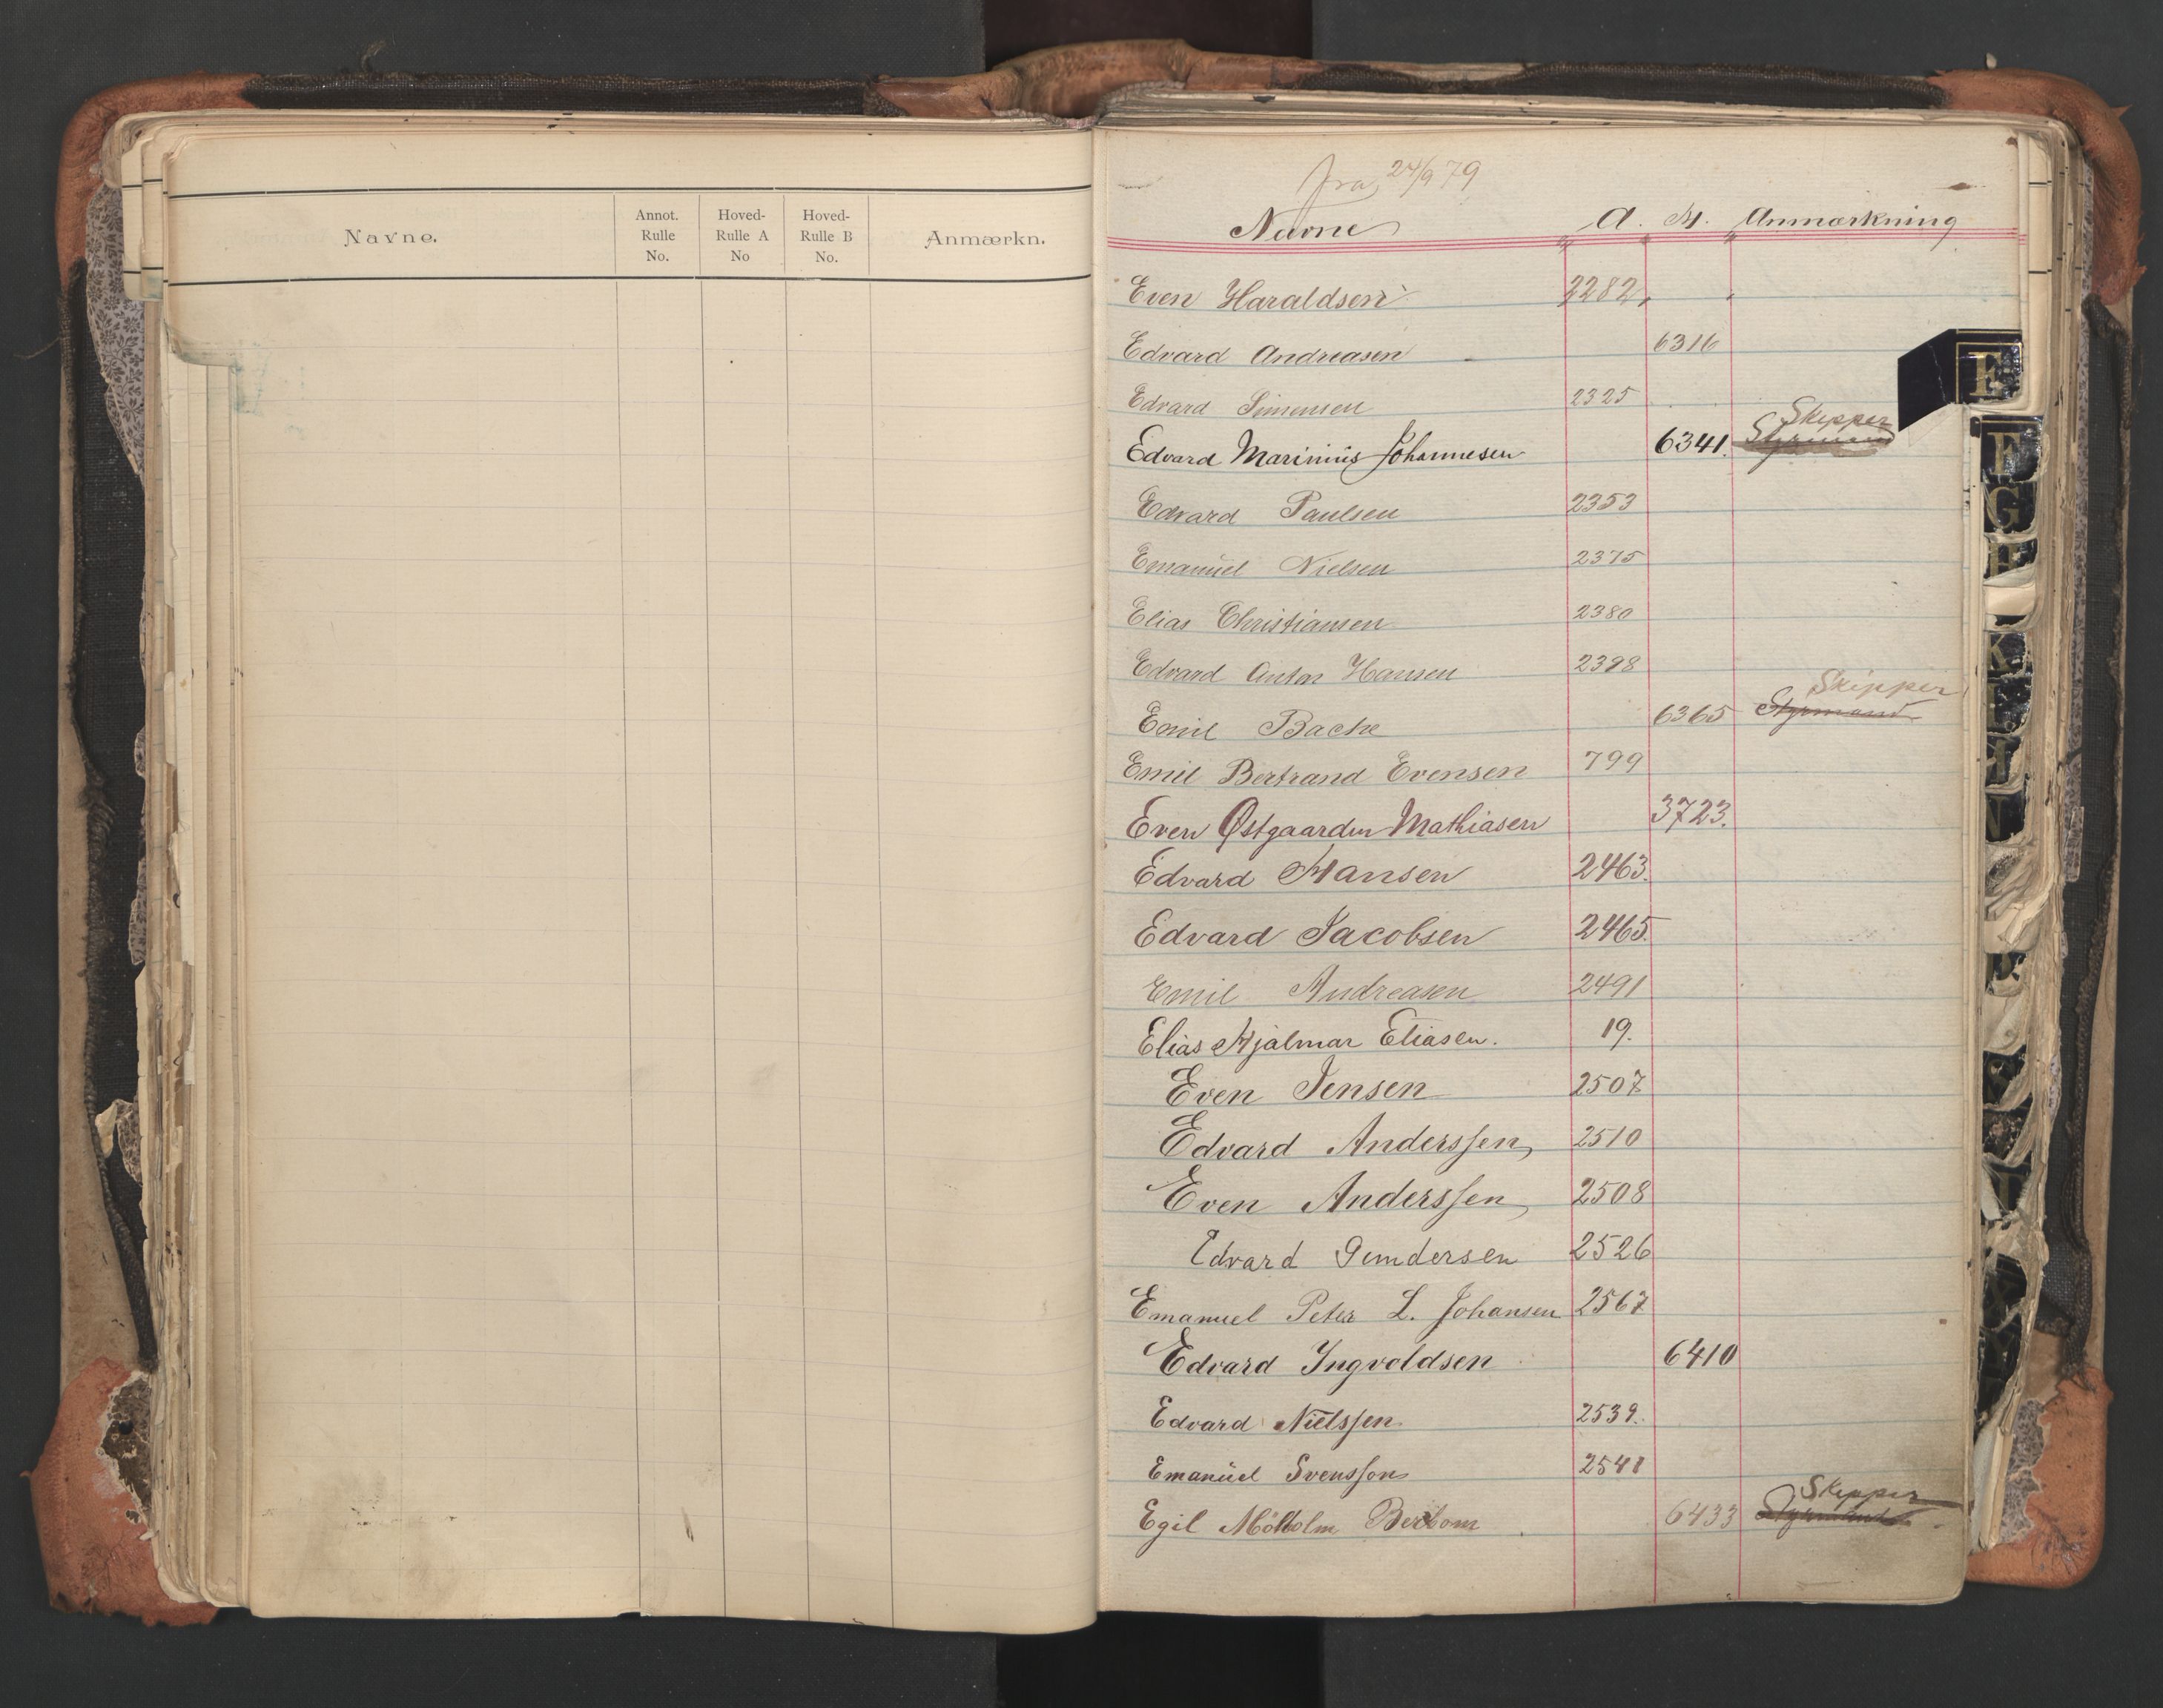 Navne.
Annot. Rulle No.
Hoved-Rulle A No
Hoved-Rulle B No.
Anmærkn.
fra 24/9 79
Navne A. H. Anmærkning
Even Haraldsen 2282
Edvard Andreasen 6316
Edvard Simensen 2325
Skipper
Edvard Marinius Johannesen 6341. Styrmand
Edvard Paulsen 2353
Emanuel Nielsen 2375
Elias Christiansen 2380
Edvard Anton Hansen 2398
Skipper
Emil Bache 6365 Styrmand
Emil Bertrand Evensen 799
Even Østgaarden Mathiasen 3723.
Edvard Hansen 2463.
Edvard Jacobsen 2465.
Emil Andreasen 2491
Elias Hjalmar Eliasen. 19.
Even Jensen 2507
Edvard Anderssen 2510
Even Anderssen 2508
Edvard Gundersen 2526
Emanuel Peter L. Johansen 2567
Edvard Ingvoldsen 6410
Edvard Nielssen 2539.
Emanuel Svensson 2541
Skipper
Egil 6433 Styrmand
E
F
G
H
K
N